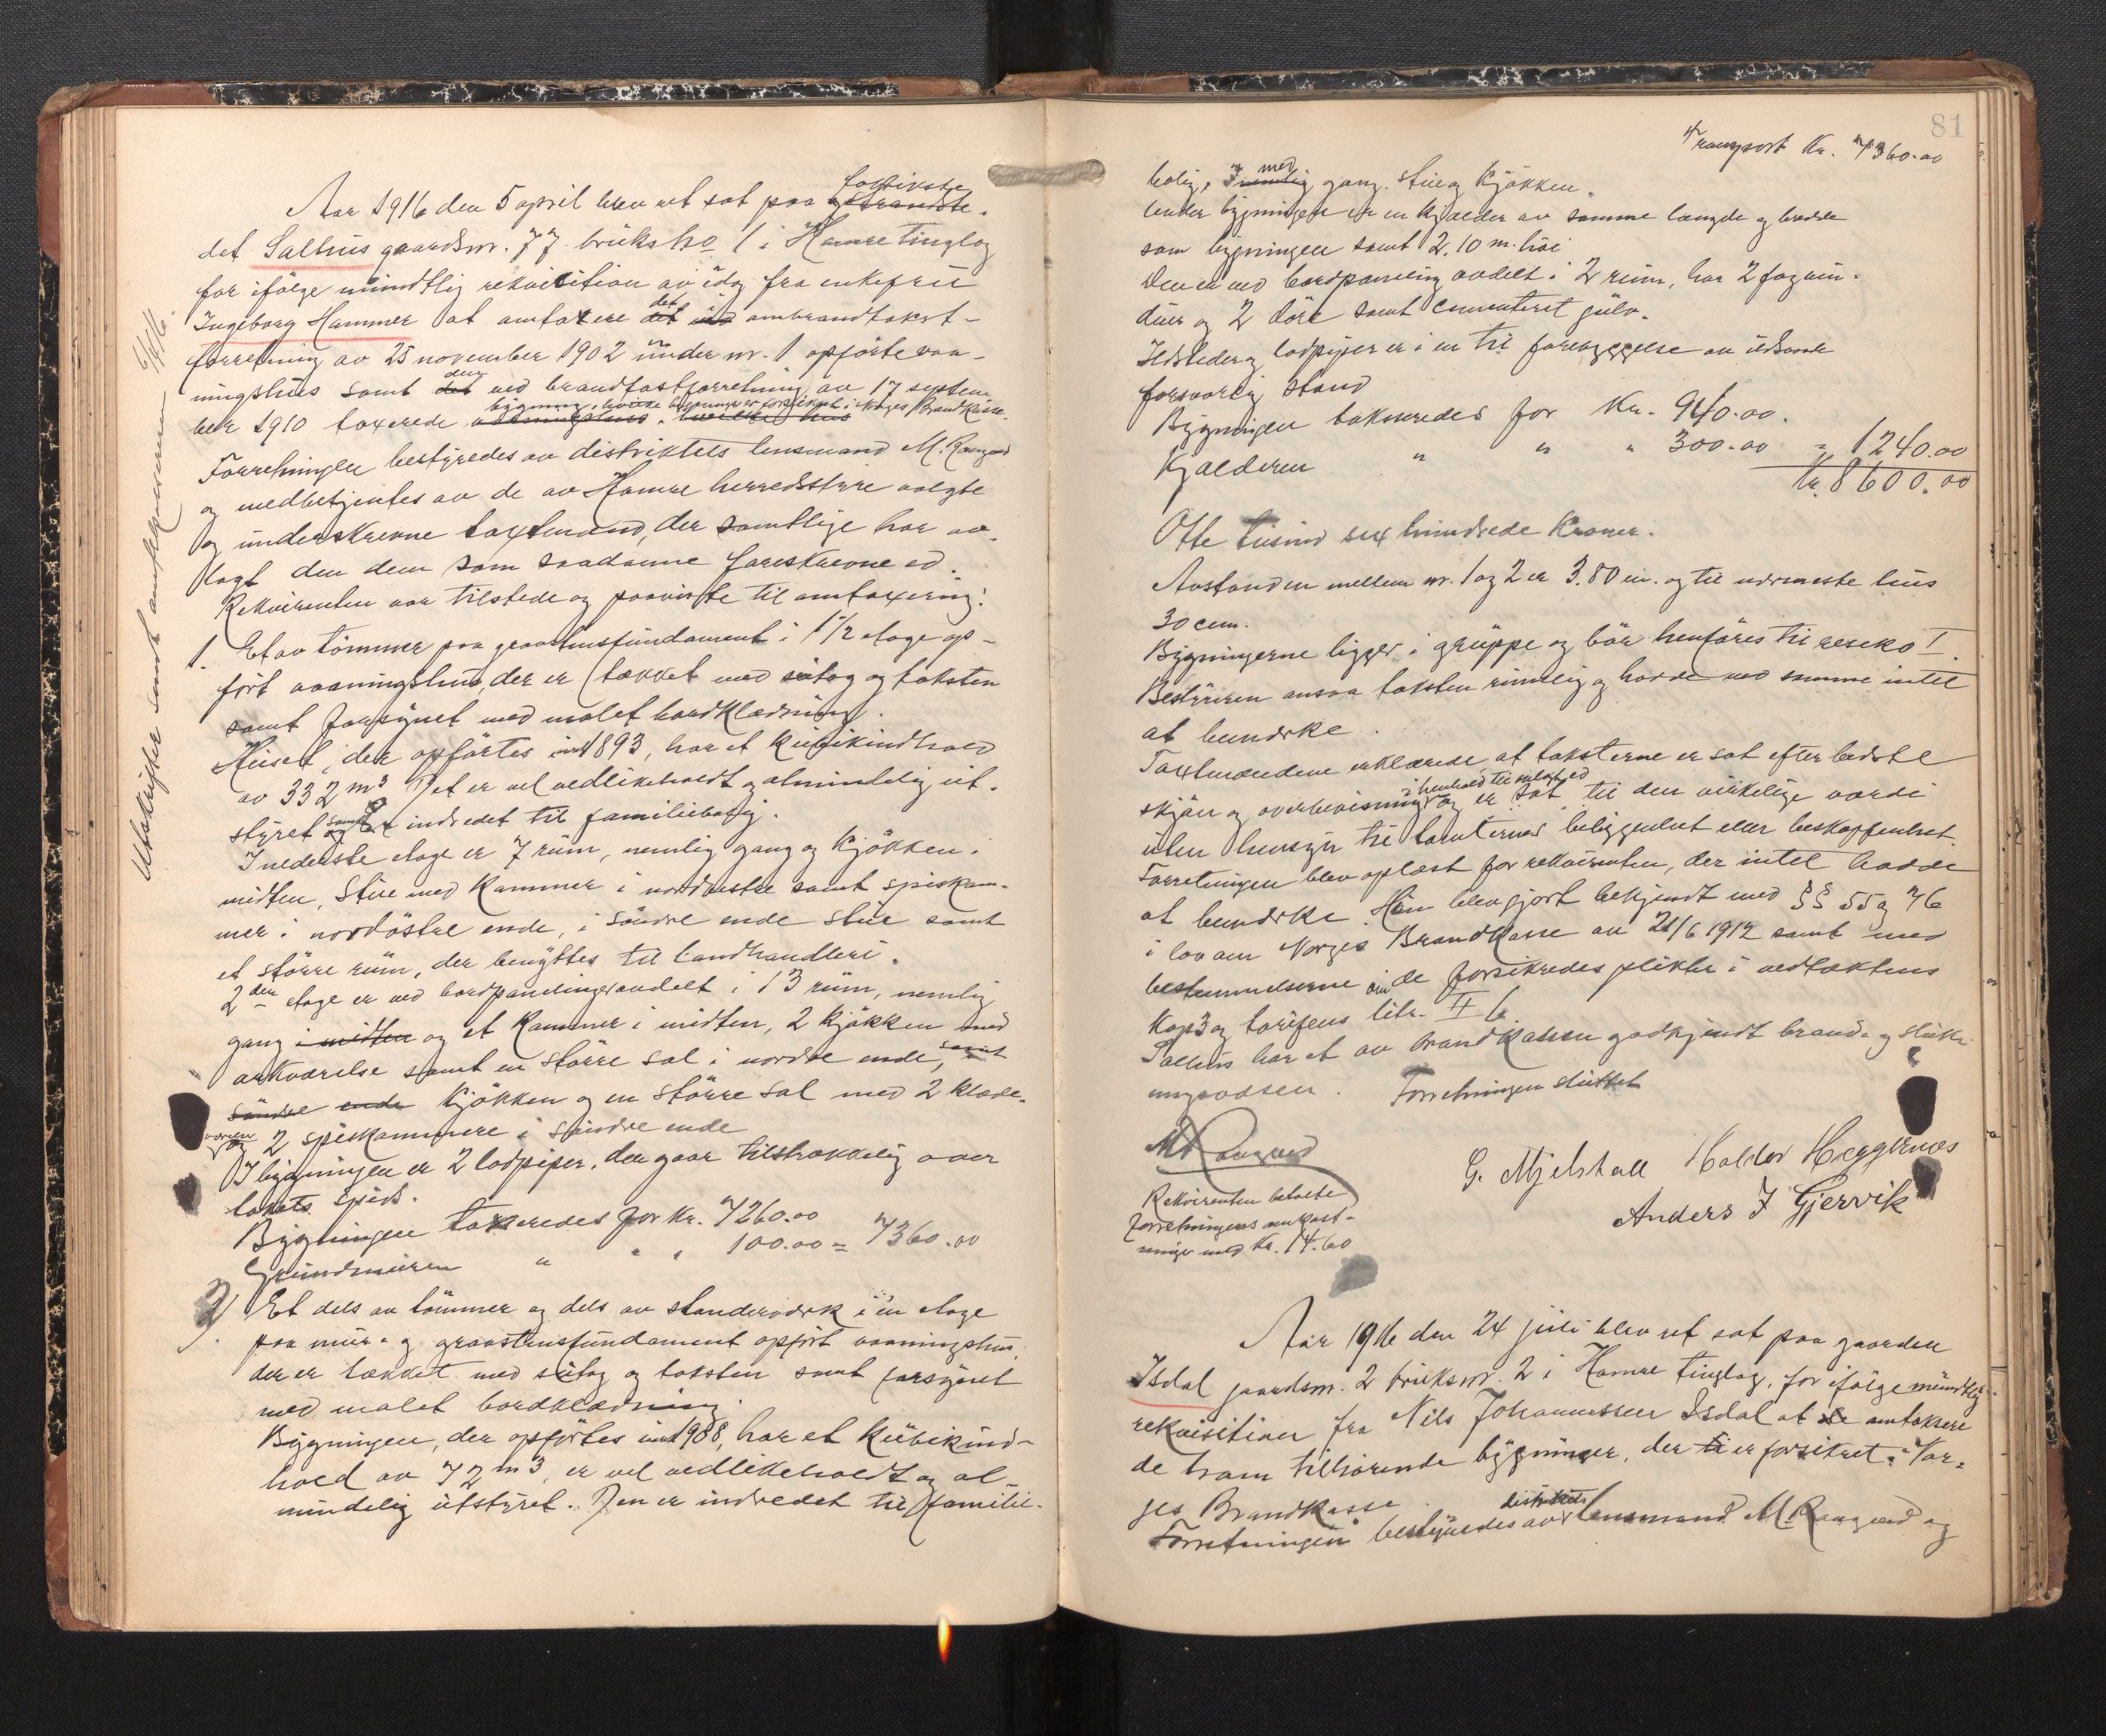 Aar 1916 den 5 april blev ret sat paa
det Salhus gaardsnr. 77 bruksno 1 i Hamre tinglag
for ifölge mundtlig rekvisition av idag fra enkefru
Ingeborg Hammer at omtaxere det i ombrandtakst-
forretning av 25 november 1902 under nr. 1 opförte vaa-
ningshus samt den ved brandtakstforretning av 17 septem
bygning, hvilke bygninger er forsikret i Norges Brandkasse.
ber 1910 taxerede
Forretningen bestyredes av distriktets lensmand M. Raugand
og medbetjentes av de av Hamre herredsstyre valgte
og underskrevne taxtmænd, der samtlige har av-
lagt den dem som saadanne foreskrevne ed.
Rekvirenten var tilstede og paaviste til omtaxering:
1. Et av tömmer paa graastensfundament i 1 1/2 etage op-
fört vaaningshus, der er tækket med sutag og taksten
samt forsynet med malet bordklædning.
Huset, der opförtes i 1893, har et kubikindhold
av 332 m3 Det er vel vedlikeholdt og almindelig ut-
styret samt indredet til familiebolig.
I nederste etage er 7 rum, nemlig gang og kjökken i
midten, stue med kammer i nordvestre samt spiskam-
mer i nordöstre ende, i söndre ende stue samt
et större rum, der benyttes til landhandleri.
2den etage er ved bordpanelinger avdelt i 13 rum, nemlig
gang i midten og et kammer i midten, 2 kjökken med
arkværelse samt en större sal i nordre ende, samt
söndre ende kjökken og en större sal med 2 klæde-
og 2 spiskammere i söndre ende
I bygningen er 2 lodpiper, der gaar tilstrækkelig over
takets spids.
Bygningen taxeredes for Kr. 7260.00
Grundmuren " " " 100.00 = 7360.00
2) Et dels av tömmer og dels av standerværk i en etage
paa mur- og graastensfundament opfört vaaningshus,
der er tækket med sutag og taksten samt forsynet
med malet bordklædning.
Bygningen, der opförtes i 1908, har et kubikind-
hold av 72 m3, er vel vedlikeholdt og al-
mindelig utstyret. Den er indredet til familie-
Utskrifter sendt
81
Transport Kr. 7360.00
bolig, med gang, stue og kjökken.
Under bygningen er en kjælder av samme længde og bredde
som bygningen samt 2.10 m. höi
Den er ved bordpaneling avdelt i 2 rum, har 2 fag vin-
duer og 2 döre samt cementeret gulv.
Ildsteder og lodpiper er i en til forebyggelse av ildsvaade
forsvarlig stand
Bygningen takseredes for Kr. 940.00.
Kjælderen " " " 300.00 = 1240.00
Kr. 8600.00
Otte tusind sex hundrede kroner.
Avstanden mellem nr. 1 og 2 er 3.80 m. og til nærmeste hus
30 cem.
Bygningerne ligger i gruppe og bör henföres til resiko I.
Bestyreren ansaa taksten rimelig og havde ved samme intet
at bemærke.
Taxtmændene erklærede at taksterne er sat efter bedste
i henhold til avlagt ed
skjön og overbevisning og er sat til den virkelige værdi
uten hensyn til tomternes beliggenhet eller beskaffenhet.
Forretningen blev oplæst for rekvirenten, der intet havde
at bemærke. Hun blev gjort bekjendt med §§ 55 og 76
i lov om Norges Brandkasse av 21/6 1912 samt med
bestemmelserne om de forsikredes plikter i vedtækterns
Kap 3 og tarifens litr. II 6
Salhus har et av brandkassen godkjendt brand- og sluk-
ningsvæsen. Forretningen sluttet
M Raugand
G. Mjelstad Haldor Heggernes
Anders J Gjervik
Rekvirenten betalte
forretningens omkost-
ninger med Kr. 14.60
Aar 1916 den 24 juli blev ret sat paa gaarden
Isdal gaardsnr. 2 bruksnr. 2 i Hamre tinglag, for ifölge mundtlig
rekvisition fra Nils Johannessen Isdal at omtaksere
de ham tilhörende bygninger, der er forsikret i Nor-
ges Brandkasse.
Forretningen bestyredes av distriktets lensmand M. Raugand og